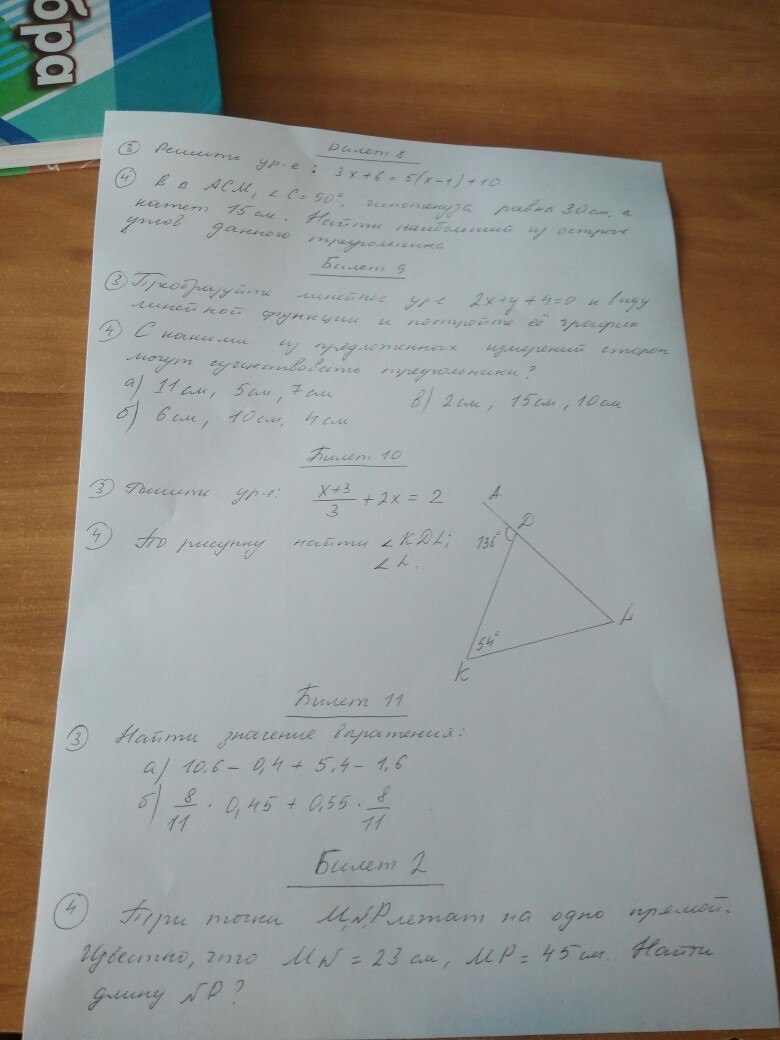 бра
Билет 8
③ Решить ур-е: 3x+6=5(x-1)+10
④ В △ ACM, ∠C=90°, гипотенуза равна 30 см, а
катет 15 см. Найти наибольший из острых
углов данного треугольника
Билет 9
③ Преобразуйте линейное ур-е 2x+y+4=0 к виду
линейной функции и постройте её график
④ С какими из предложенных измерений сторон
могут существовать треугольники?
а) 11 см, 5 см, 7 см в) 2 см, 15 см, 10 см
б) 6 см, 10 см, 4 см
Билет 10
③ Решить ур-е: \frac{x+3}{3} + 2x = 2
④ По рисунку найти ∠KDL;
∠L.
A
D
136°
L
54°
K
Билет 11
③ Найти значение выражения:
а) 10.6 - 0,4 + 5.4 - 1,6
б) \frac{8}{11} · 0,45 + 0,55 · \frac{8}{11}
Билет 2
④ Три точки M,N,P лежат на одно прямой.
Известно, что MN = 23 см, MP = 45 см. Найти
длину NP?